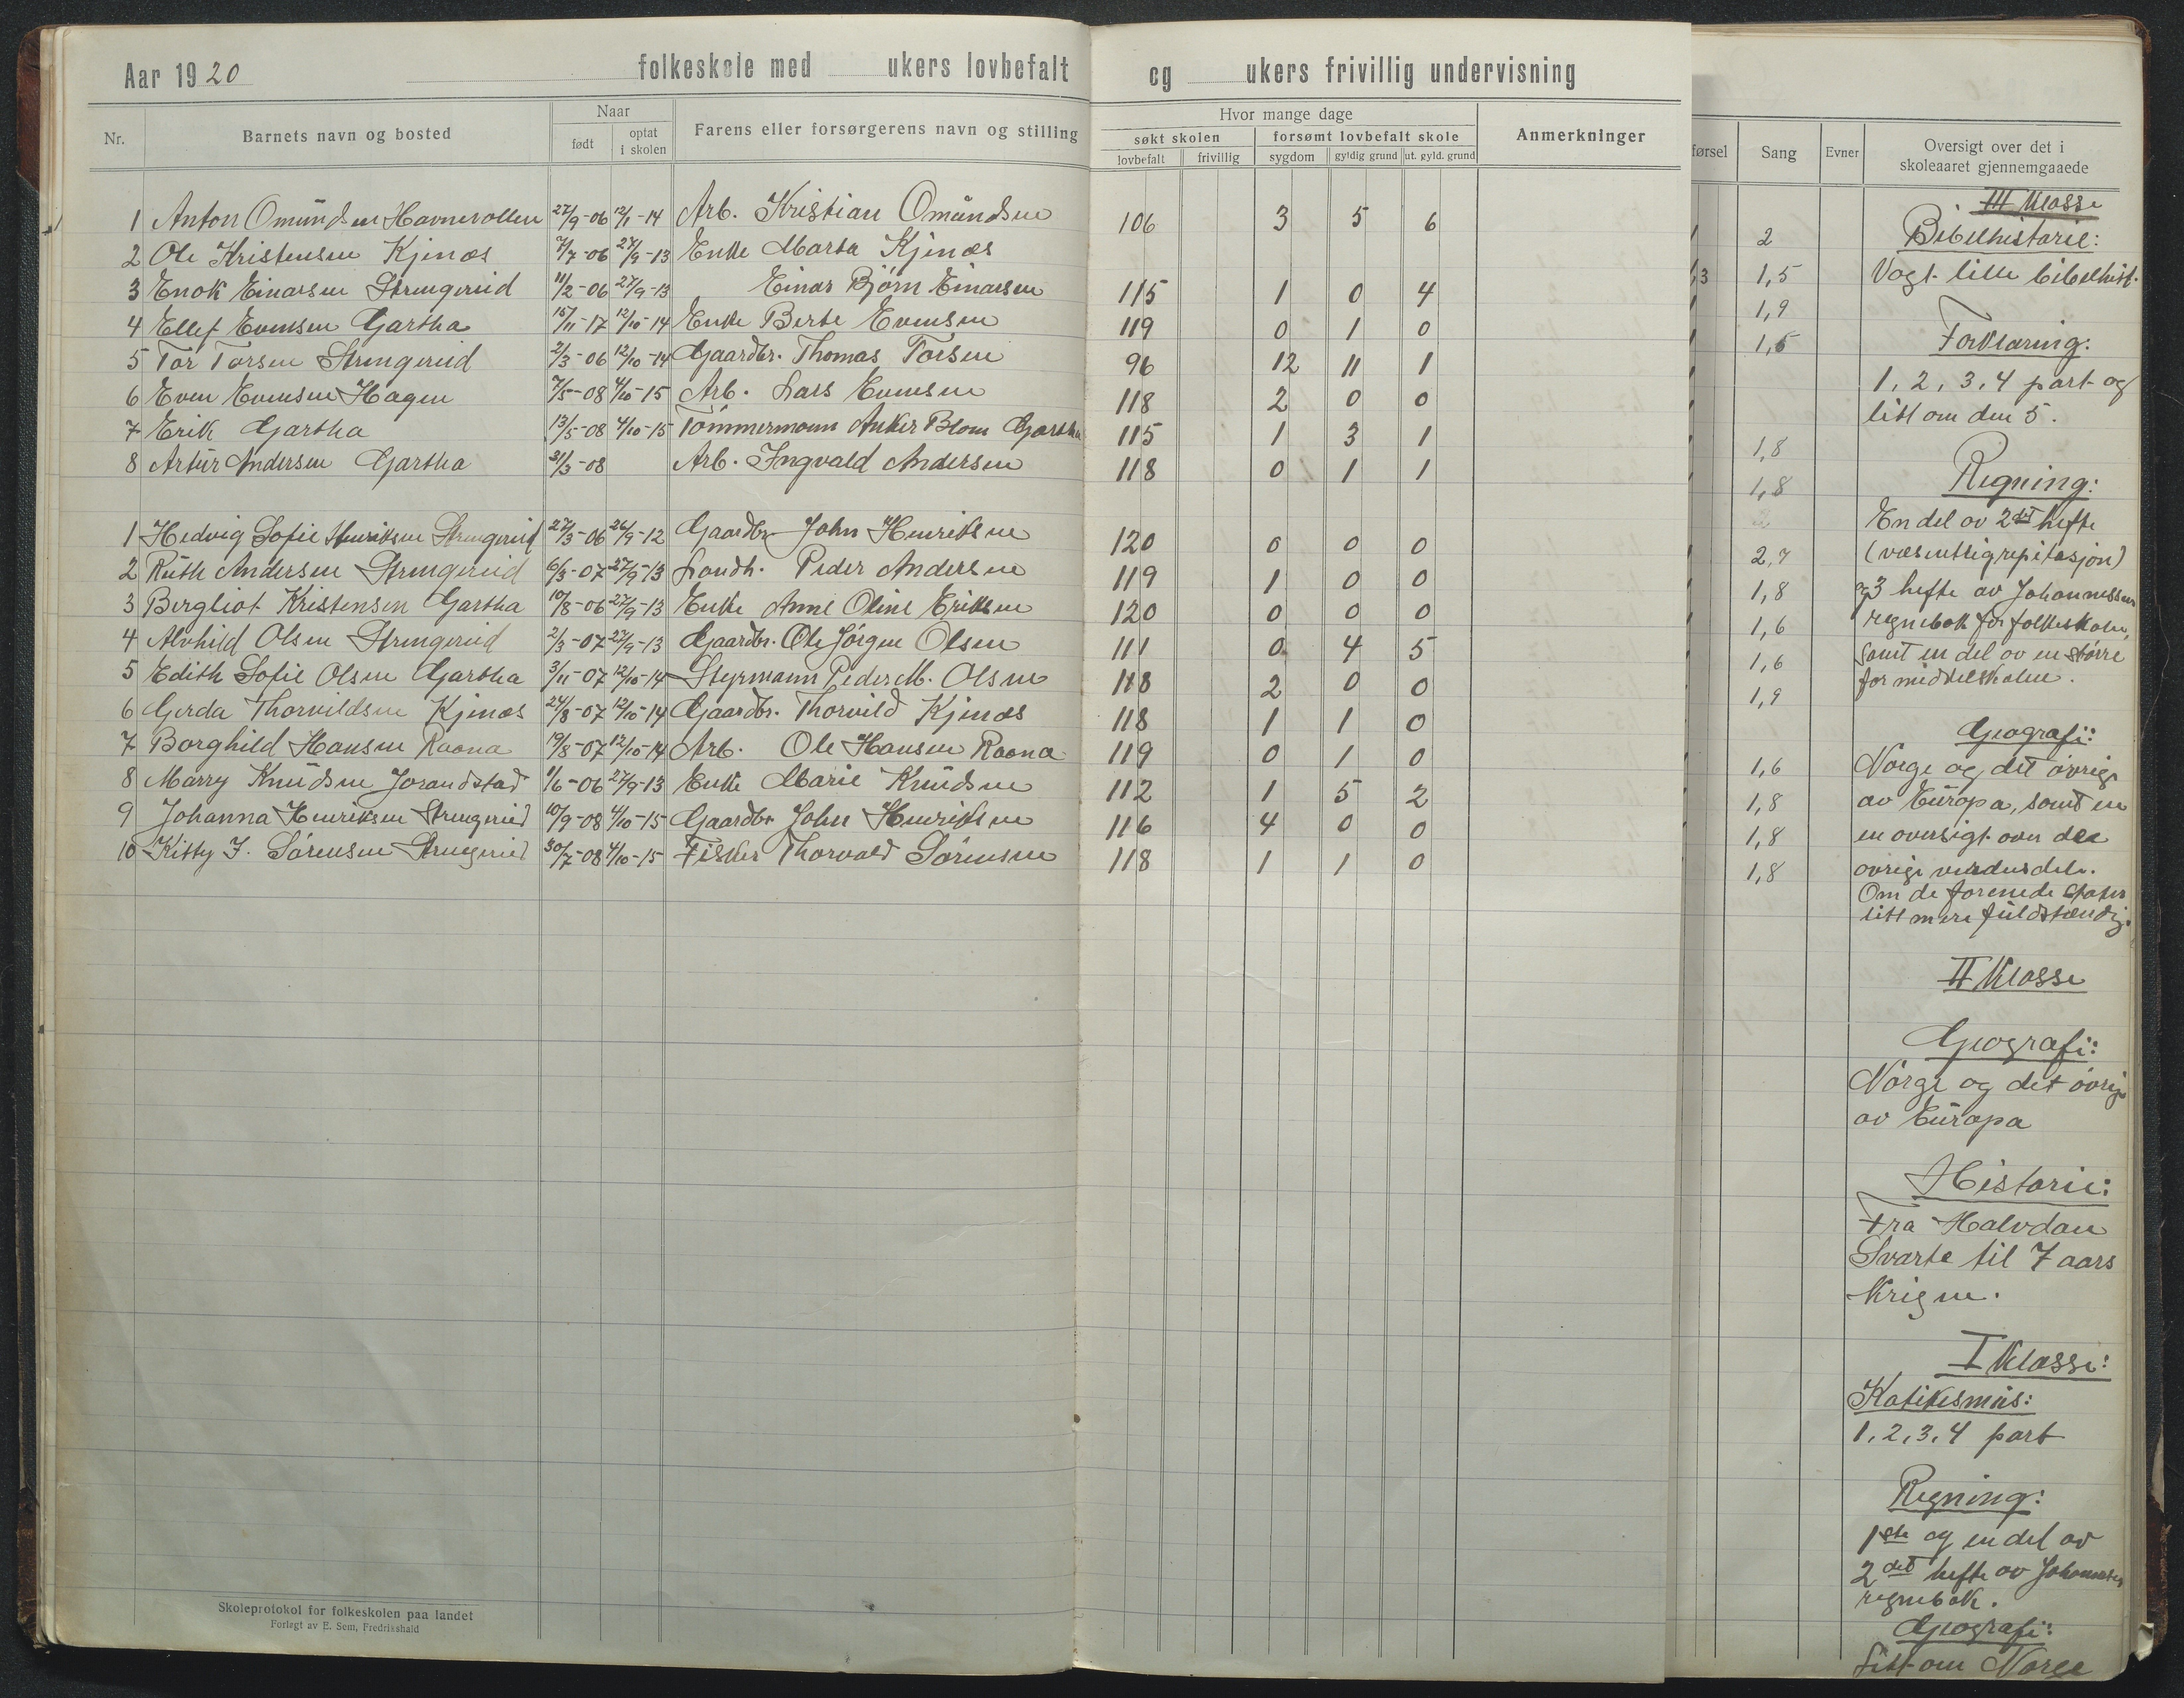 Aar 1920 folkeskole med ukers lovbefalt og ukers frivillig undervisning
Nr. Barnets navn og bosted Naar født optat i skolen Farens eller forsørgerens navn og stilling Hvor mange dage søkt skolen lovbefalt frivillig forsømt lovbefalt skole sygdom gyldig grund ut. gyld. grund Anmerkninger
1 Anton Omundsen Havnevollen 27/9-06 12/1-14 Arb. Kristian Omundsen 106 3 5 6
2 Ole Kristensen Kjenæs 7/7-06 27/9-13 Enke Marta Kjenæs
3 Enok Einarsen Strengereid 11/2-06 27/9-13 Einar Bjørn Einarsen 115 1 0 4
4 Ellef Evensen Gartha 15/11-17 12/10-14 Enke Berte Evensen 119 0 1 0
5 Tor Torsen Strengereid 2/3-06 12/10-14 Gaardbr. Thomas Torsen 96 12 11 1
6 Even Evensen Hagen 7/5-08 4/10-15 Arb. Lars Evensen 118 2 0 0
7 Erik Gartha 13/5-08 4/10-15 Tømmermann Anker Blom Gartha 115 1 3 1
8 Artur Andersen Gartha 31/3-08 Arb. Ingvald Andersen 118 0 1 1
1 Hedvig Sofie Henriksen Strengereid 27/3-06 26/9-12 Gaardbr John Henriksen 120 0 0 0
2 Ruth Andersen Strengereid 6/3-07 27/9-13 Landh. Peder Andersen 119 1 0 0
3 Bergliot Kristensen Gartha 10/8-06 27/9-13 Enke Anne Oline Eriksen 120 0 0 0
4 Alvhild Olsen Strengereid 2/3-07 27/9-13 Gaardbr. Ole Jørgen Olsen 111 0 4 5
5 Edith Sofie Olsen Gartha 3/11-07 12/10-14 Styrmann Peder M. Olsen 118 2 0 0
6 Gerda Thorvildsen Kjenæs 24/8-07 12/10-14 Gaardbr. Thorvild Kjenæs 118 1 1 0
7 Borghild Hansen Raona 19/8-07 12/10-14 Arb. Ole Hansen Raona 119 0 1 0
8 Marry Knudsen Jorandstad 1/6-06 27/9-13 Enke Marie Knudsen 112 1 5 2
9 Johanna Henriksen Strengereid 10/9-08 4/10-15 Gaardbr John Henriksen 116 4 0 0
10 Kitty J. Sørensen Strengereid 30/7-08 4/10-15 Fisker Thorvald Sørensen 118 1 1 0
Skoleprotokol for folkeskolen paa landet
Forlegt av E. Sem, Fredrikshald
førsel Sang Evner Oversigt over det i skoleaaret gjennemgaaede
2
1,5
1,9
1,5
1,8
1,8
2
2,7
1,8
1,6
1,6
1,9
1,6
1,8
1,8
1,8
III Klasse
Bibelhistorie:
Vogt. lille bibelhist.
Forklaring:
1, 2, 3, 4 part og
litt om den 5.
Regning:
En del av 2det hefte
(væsentlig repitasjon)
og 3 hefte av Johannessen
regnebok for folkeskolen,
samt en del av en større
for middelskolen.
Geografi:
Norge og det øvrige
av Europa, samt en
en oversigt over de
øvrige verdensdele.
Om de forenede stater
litt mere fuldstændig.
II Klasse
Geografi:
Norge og det øvrige
av Europa
Historie:
Fra Halvdan
Svarte til 7 aars
krigen.
I Klasse:
Katikesmus:
1, 2, 3, 4 part
Regning:
1ste og en del av
2det hefte av Johannessen
regnebok.
Geografi:
Litt om Norge